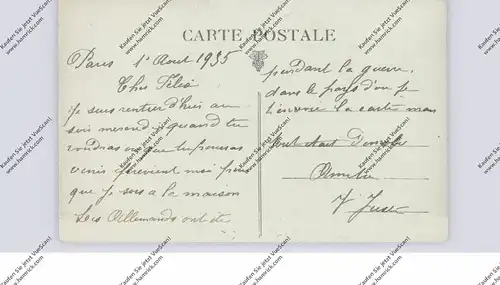 CARTE POSTALE
Paris 1 Aout 1935
Cher Félix
je suis rentier d'hier au
soir mercredi quand tu
voudras ou que tu pouras
venir previent moi pour
que je sois a la maison
Les Allemands ont été
pendant la guerre,
dans le pays d'ou je
t'envoie la carte mais
tout
Amitie
Kaufen Sie jetzt VueScan!
www.hamrick.com